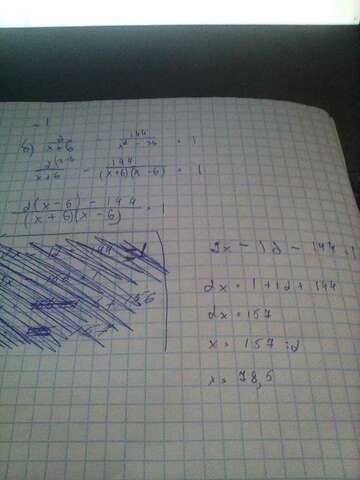 = 1
б) 2/(x+6) - 144/(x² - 36) = 1
2(x-6)/(x+6) - 144/((x+6)(x-6)) = 1
(2(x-6) - 144)/((x+6)(x-6)) = 1
2x - 12 - 144 = 1
2x = 1 + 12 + 144
2x = 157
x = 157 : 2
x = 78,5